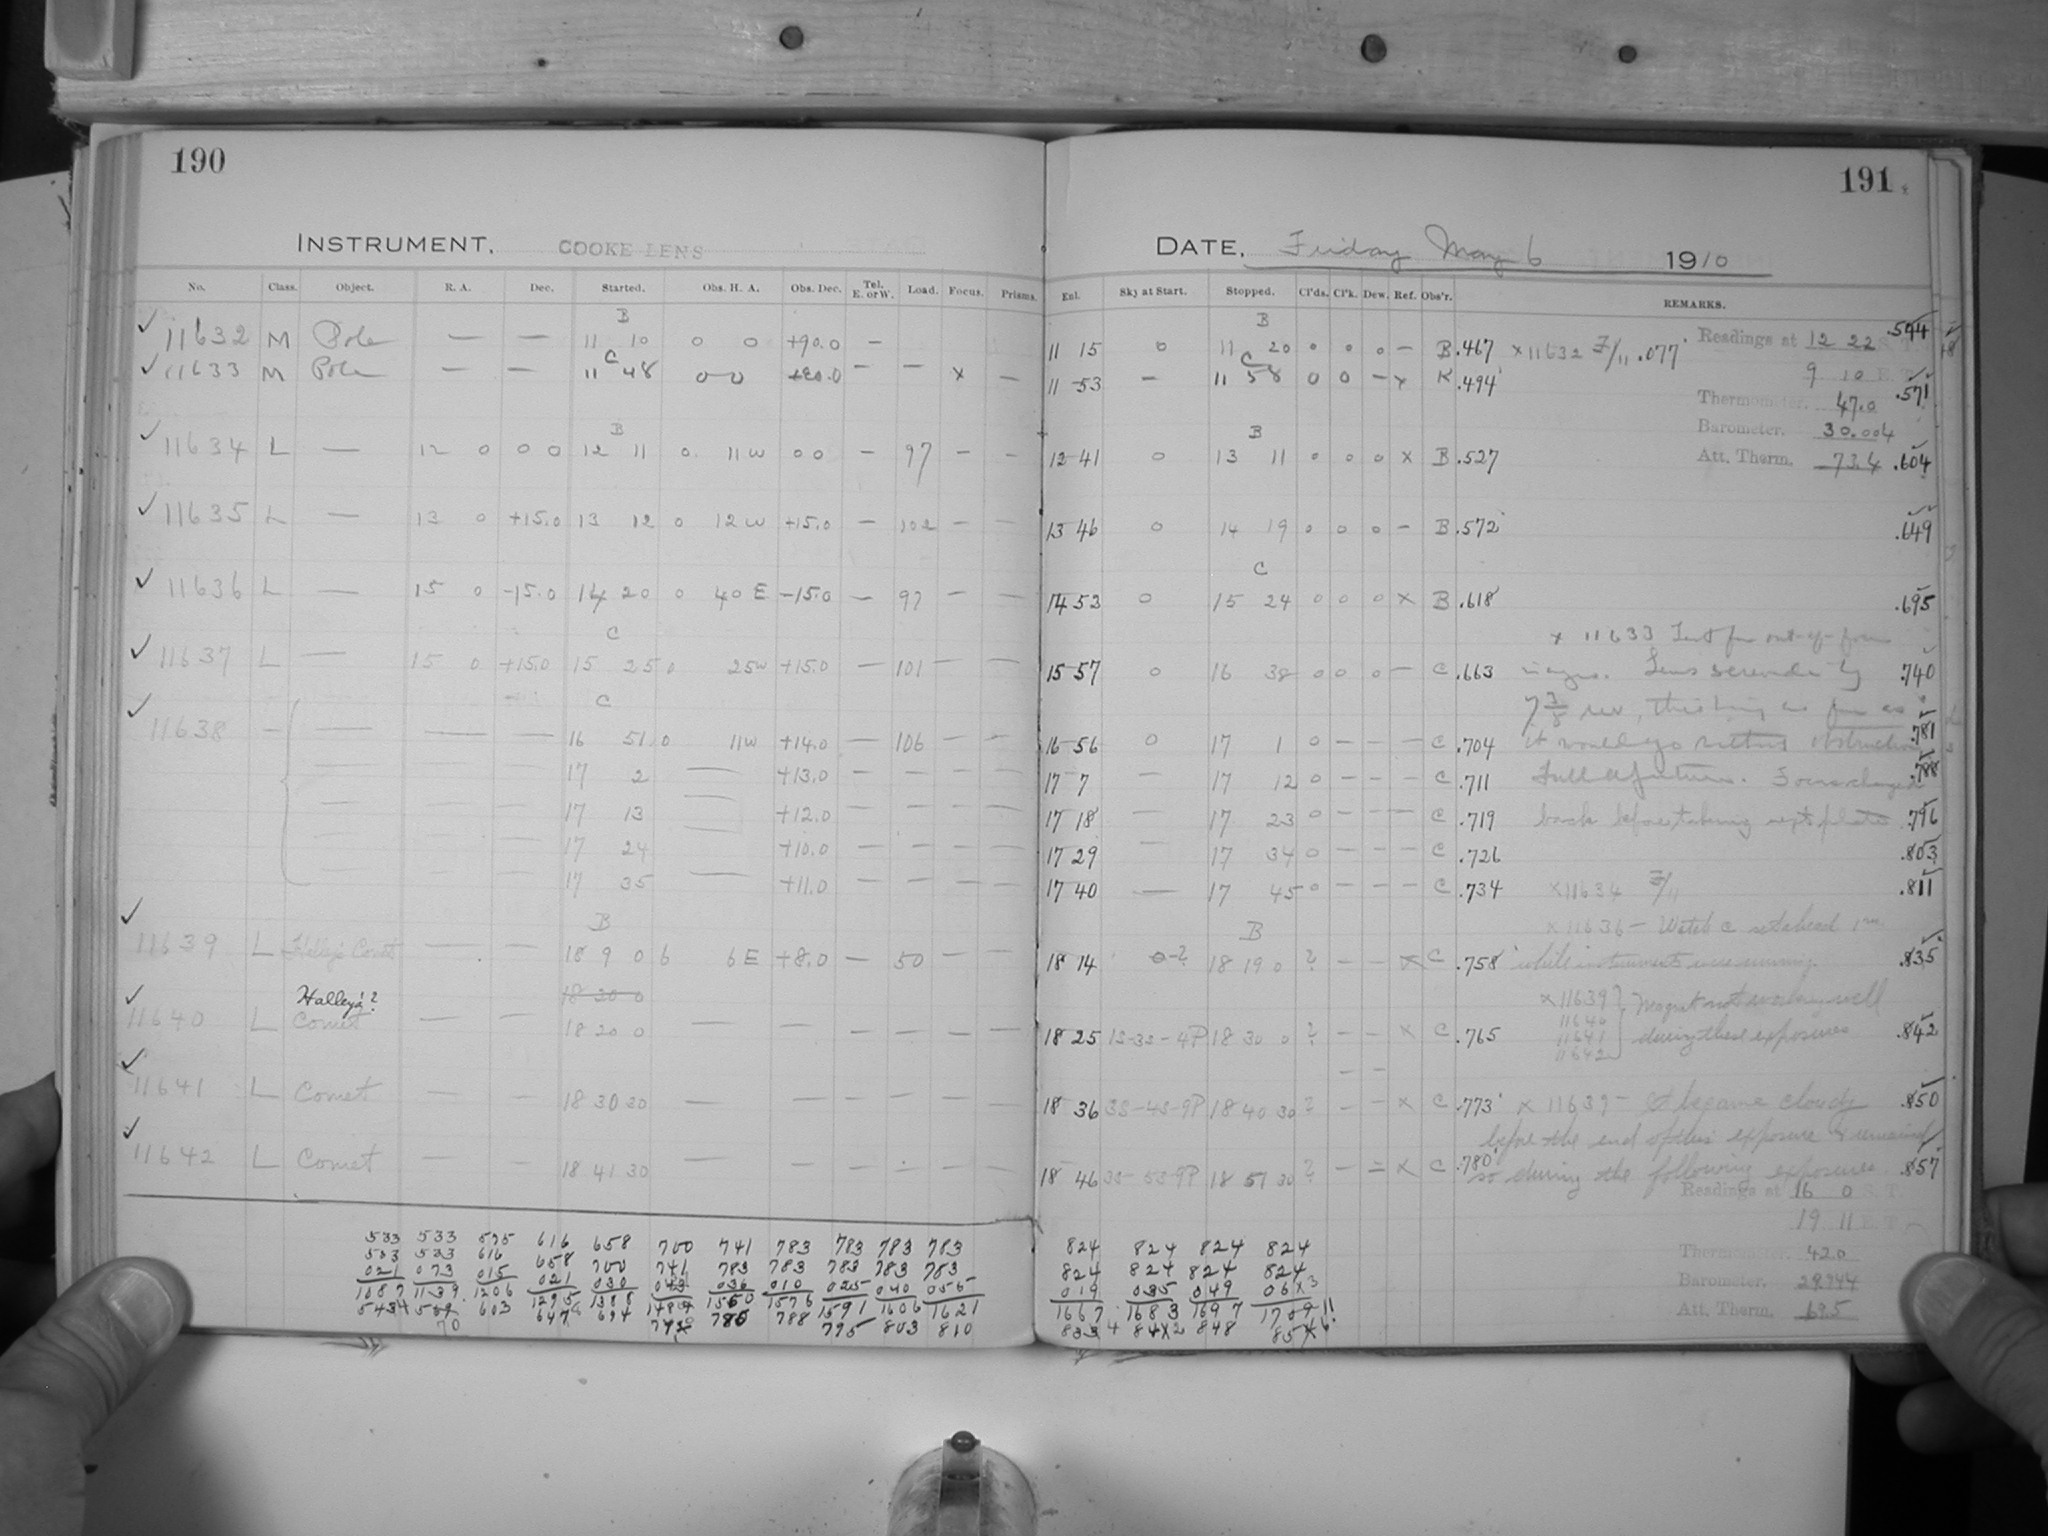 190
INSTRUMENT. COOKE LENS
No. Class. Object. R. A. Dec. Started. Obs. H. A. Obs. Dec. Tel. E. or W. Load. Focus. Prisms.
B
11632 M Pole — — 11 10 0 0 +90.0 —
C
11633 M Pole — — 11 48 0 0 +90.0 — — x —
B
11634 L — 12 0 0 0 12 11 0 11 W 0 0 — 97 — —
11635 L — 13 0 +15.0 13 12 0 12 W +15.0 — 102 — —
11636 L — 15 0 -15.0 14 20 0 40 E -15.0 — 97 — —
C
11637 L — 15 0 +15.0 15 25 0 25 W +15.0 — 101 — —
C
11638 — — — — 16 51 0 11 W +14.0 — 106 — —
— — — 17 2 — +13.0 — — — —
— — — 17 13 — +12.0 — — — —
— — — 17 24 — +10.0 — — — —
— — — 17 35 — +11.0 — — — —
B
11639 L Halley's Comet — — 18 9 0 6 6 E +8.0 — 50 — —
Halley's?
18 20 0
11640 L Comet — — 18 20 0 — — — — — —
11641 L Comet — — 18 30 30 — — — — — —
11642 L Comet — — 18 41 30 — — — — — —
533 533 575 616 658 700 741 783 783 783 783
533 533 616 658 700 741 783 783 783 783 783
021 073 015 021 030 043 036 010 025 040 055
1087 1139 1206 1295 1388 1484 1560 1576 1591 1606 1621
543 603 647 694 742 780 788 795 803 810
70
191
DATE, Friday May 6 1910
Enl. Sky at Start. Stopped. Cl'ds. Cl'k. Dew. Ref. Obs'r. REMARKS.
B
11 15 0 11 20 0 0 0 — B .467 x 11632 F/11 .077 Readings at 12 22 S. T. .544
C
9 10 E. T.
11 53 — 11 58 0 0 — x K .494 .571
Thermometer. 47.0
B
Barometer. 30.004
12 41 0 13 11 0 0 0 x B .527 Att. Therm. 73.4 .604
13 46 0 14 19 0 0 0 — B .572 .649
C
14 53 0 15 24 0 0 0 x B .618 .695
x 11633 Test for out-of-focus
15 57 0 16 38 0 0 0 — C .663 images. Lens screwed in by .740
7 3/8 rev, this being as far as
16 56 0 17 1 0 — — — C .704 it would go without obstruction .781
17 7 — 17 12 0 — — — C .711 Full aperture. Focus changed .788
17 18 — 17 23 0 — — — C .719 back before taking next plate .796
17 29 — 17 34 0 — — — C .726 .803
17 40 — 17 45 0 — — — C .734 x 11634 F/11 .811
B
x 11636 — Watch C set ahead 1m
18 14 0-? 18 19 0 ? — — x C .758 while instruments were running. .835
x 11639 } Magnet not working well
11640
18 25 1S-3S-4P 18 30 0 ? — — x C .765 11641 during these exposures .842
11642
— —
18 36 3S-4S-9P 18 40 30 ? — — x C .773 x 11639 — It became cloudy .850
before the end of this exposure & remained
18 46 3S-5S-9P 18 51 30 ? — = x C .780 so during the following exposures .857
Readings at 16 0 S. T.
19 11 E. T.
Thermometer. 42.0
Barometer. 29.944
Att. Therm. 69.5
824 824 824 824
824 824 824 824
019 035 049
1667 1683 1697
848